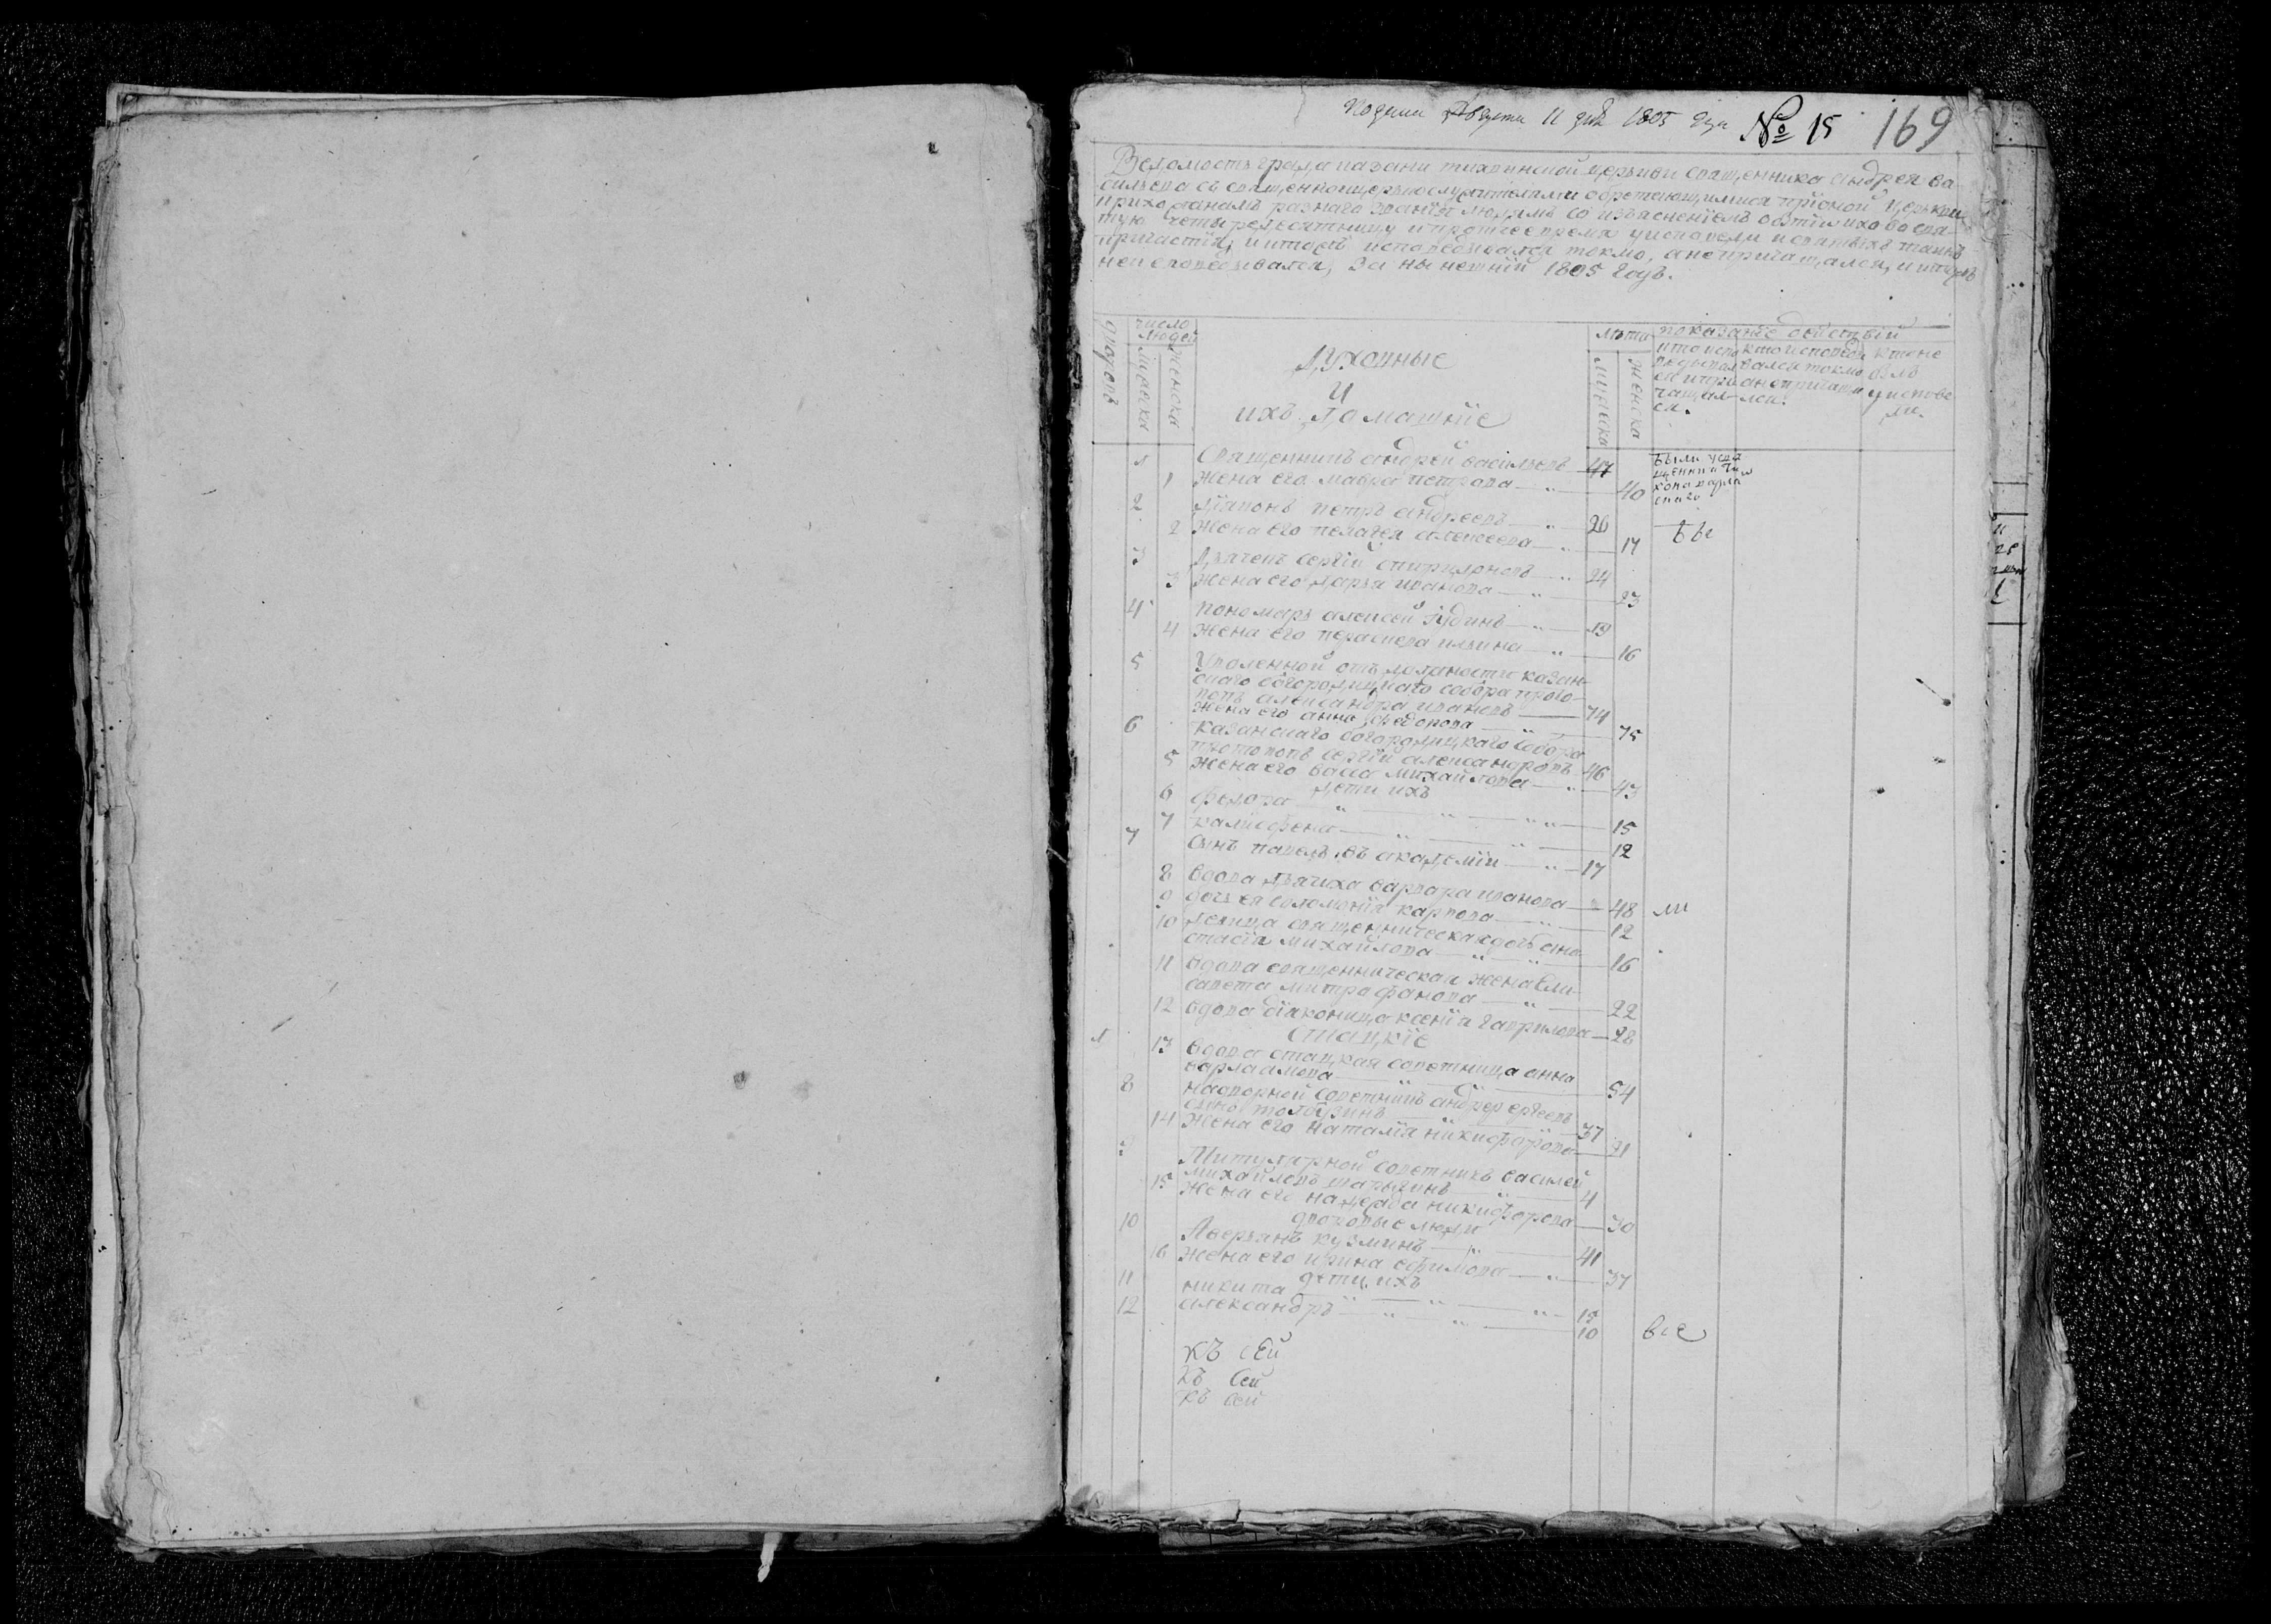 Августа 11 дня 1805 года № 15 169
Ведомость града казани тихвинской церкви священника андрея ва-
сильева съ священноцерковнослужительми обретающимися при оной церкви
прихожанамъ разнаго званїя людямъ со изъясненїемъ бытїя ихъ во свя-
тую четыредесятницу и протчее время у исповеди и святыхъ таинъ
причастїя, и кто исповедывался токмо, а не причащался, и кто
не исповедывался, за нынешнїй 1805 годъ.
дворовъ
число людей
мужска
женска
Духовные
и
ихъ домашнїе
лѣта
мужеска
женска
показанїе действїй
кто испо кто исповеды кто не
ведывал вался токмо былъ
ся и при а не причаща у испове
чащал- лся. ди.
ся.
1 Священникъ андрей васильевъ 47
1 жена его мавра петрова 40
были
2 дїяконъ петръ андреевъ 26
2 жена его пелагея алексеева 17
бы
3 дьячекъ сергїй спиридоновъ 24
3 жена его дарья иванова 23
4 пономарь алексей Iудинъ 19
4 жена его параскева ильина 16
5 Уволенной отъ должности казан-
скаго богородицкаго собора прото-
попъ александра ивановъ 74
жена его анна федорова 75
6 казанскаго богородицкаго собора
протопопъ сергїй александровъ 46
5 жена его васса михайлова 43
дети ихъ
6 федора 15
7 калисфена 12
7 сынъ павелъ въ академїи 17
8 вдова дьячиха варвара иванова 48 ли
9 дочь ея соломонїя карпова 12
10 девица священническая дочь ана-
стасїя михайлова 16
11 вдова священническая жена ели-
савета митрофанова 22
12 вдова дїаконица ксенїя гаврилова 28
статскїе
1 13 вдова статская советница анна
варламова 54
8 надворной советникъ андрей сергеевъ
сынъ толбузинъ 37
14 жена его наталїя никифорова 21
9 Титулярной советникъ василей
михайловъ 4
15 жена его надежда никифорова 30
дворовые люди
10 Аверьянъ кузминъ 41
16 жена его ирина ефимова 37
дети ихъ
11 никита 15
12 александръ 10 все
къ сей
къ сей
къ сей